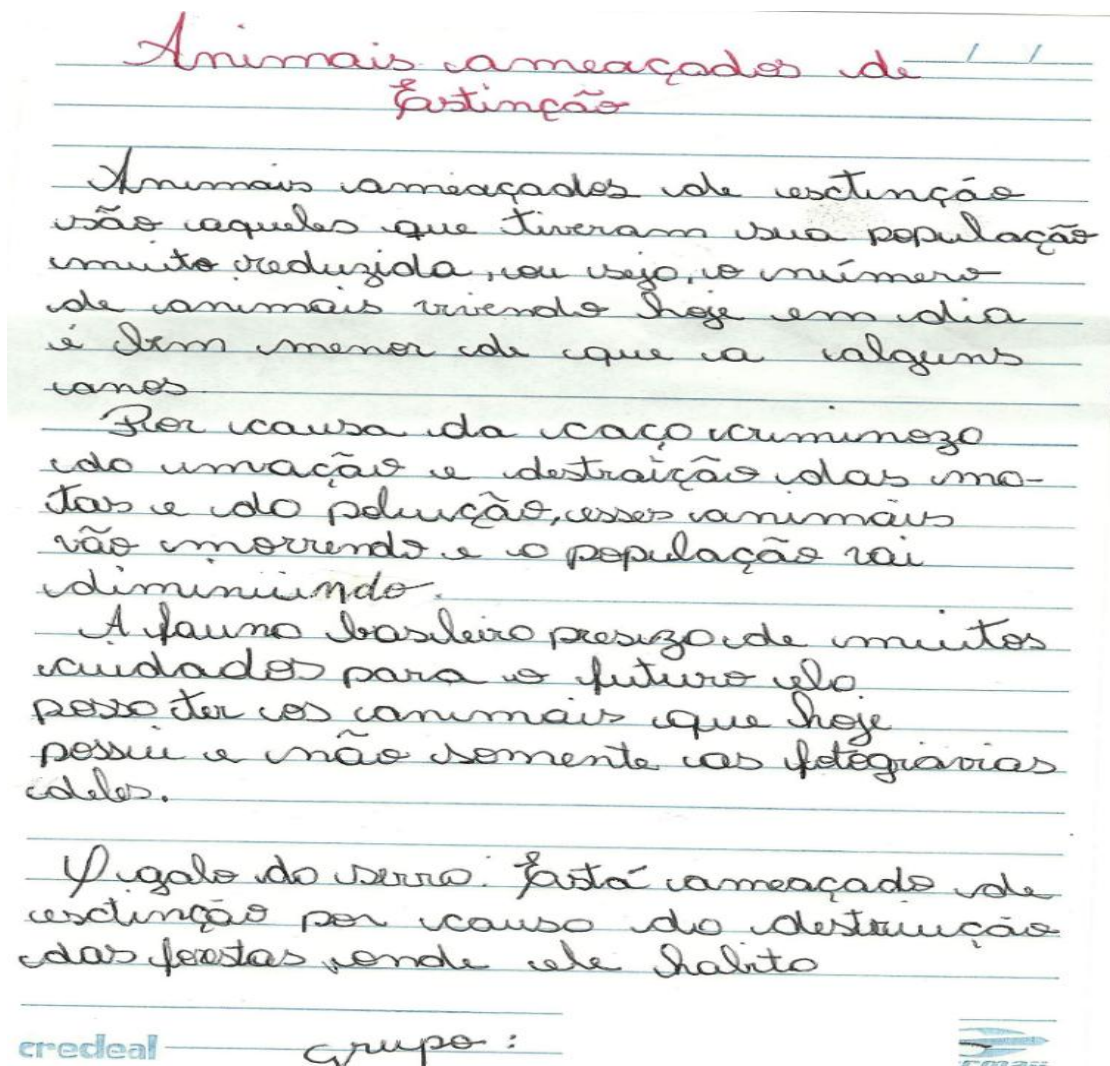 Animais ameaçados de / /
Estinção
Animais ameaçados de esctinção
são aqueles que tiveram sua população
muito reduzida, ou sejo, o número
de animais vivendo hoje em dia
é bem menor de que a alguns
anos
Por causa da caço criminozo
do umação e destraição das ma-
tas e do poluição, esses animais
vão morrendo e o população vai
diminuindo.
A fauno basileiro presizo de muitos
cuidados para o futuro elo
posso ter os animais que hoje
possui e não somente as fotógravias
deles.
O galo do serro. Está ameaçado de
esctinção por causo do destruição
das forestas, onde ele habito
credeal
grupo: